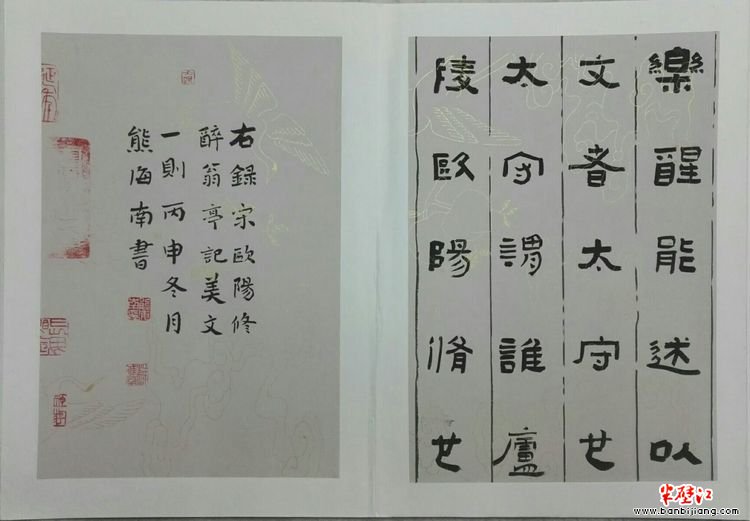 樂醒能述以
文者太守也
太守謂誰廬
陵歐陽脩也
右錄宋歐陽修
醉翁亭記美文
一則丙申冬月
熊海南書
半壁江
www.banbijiang.com